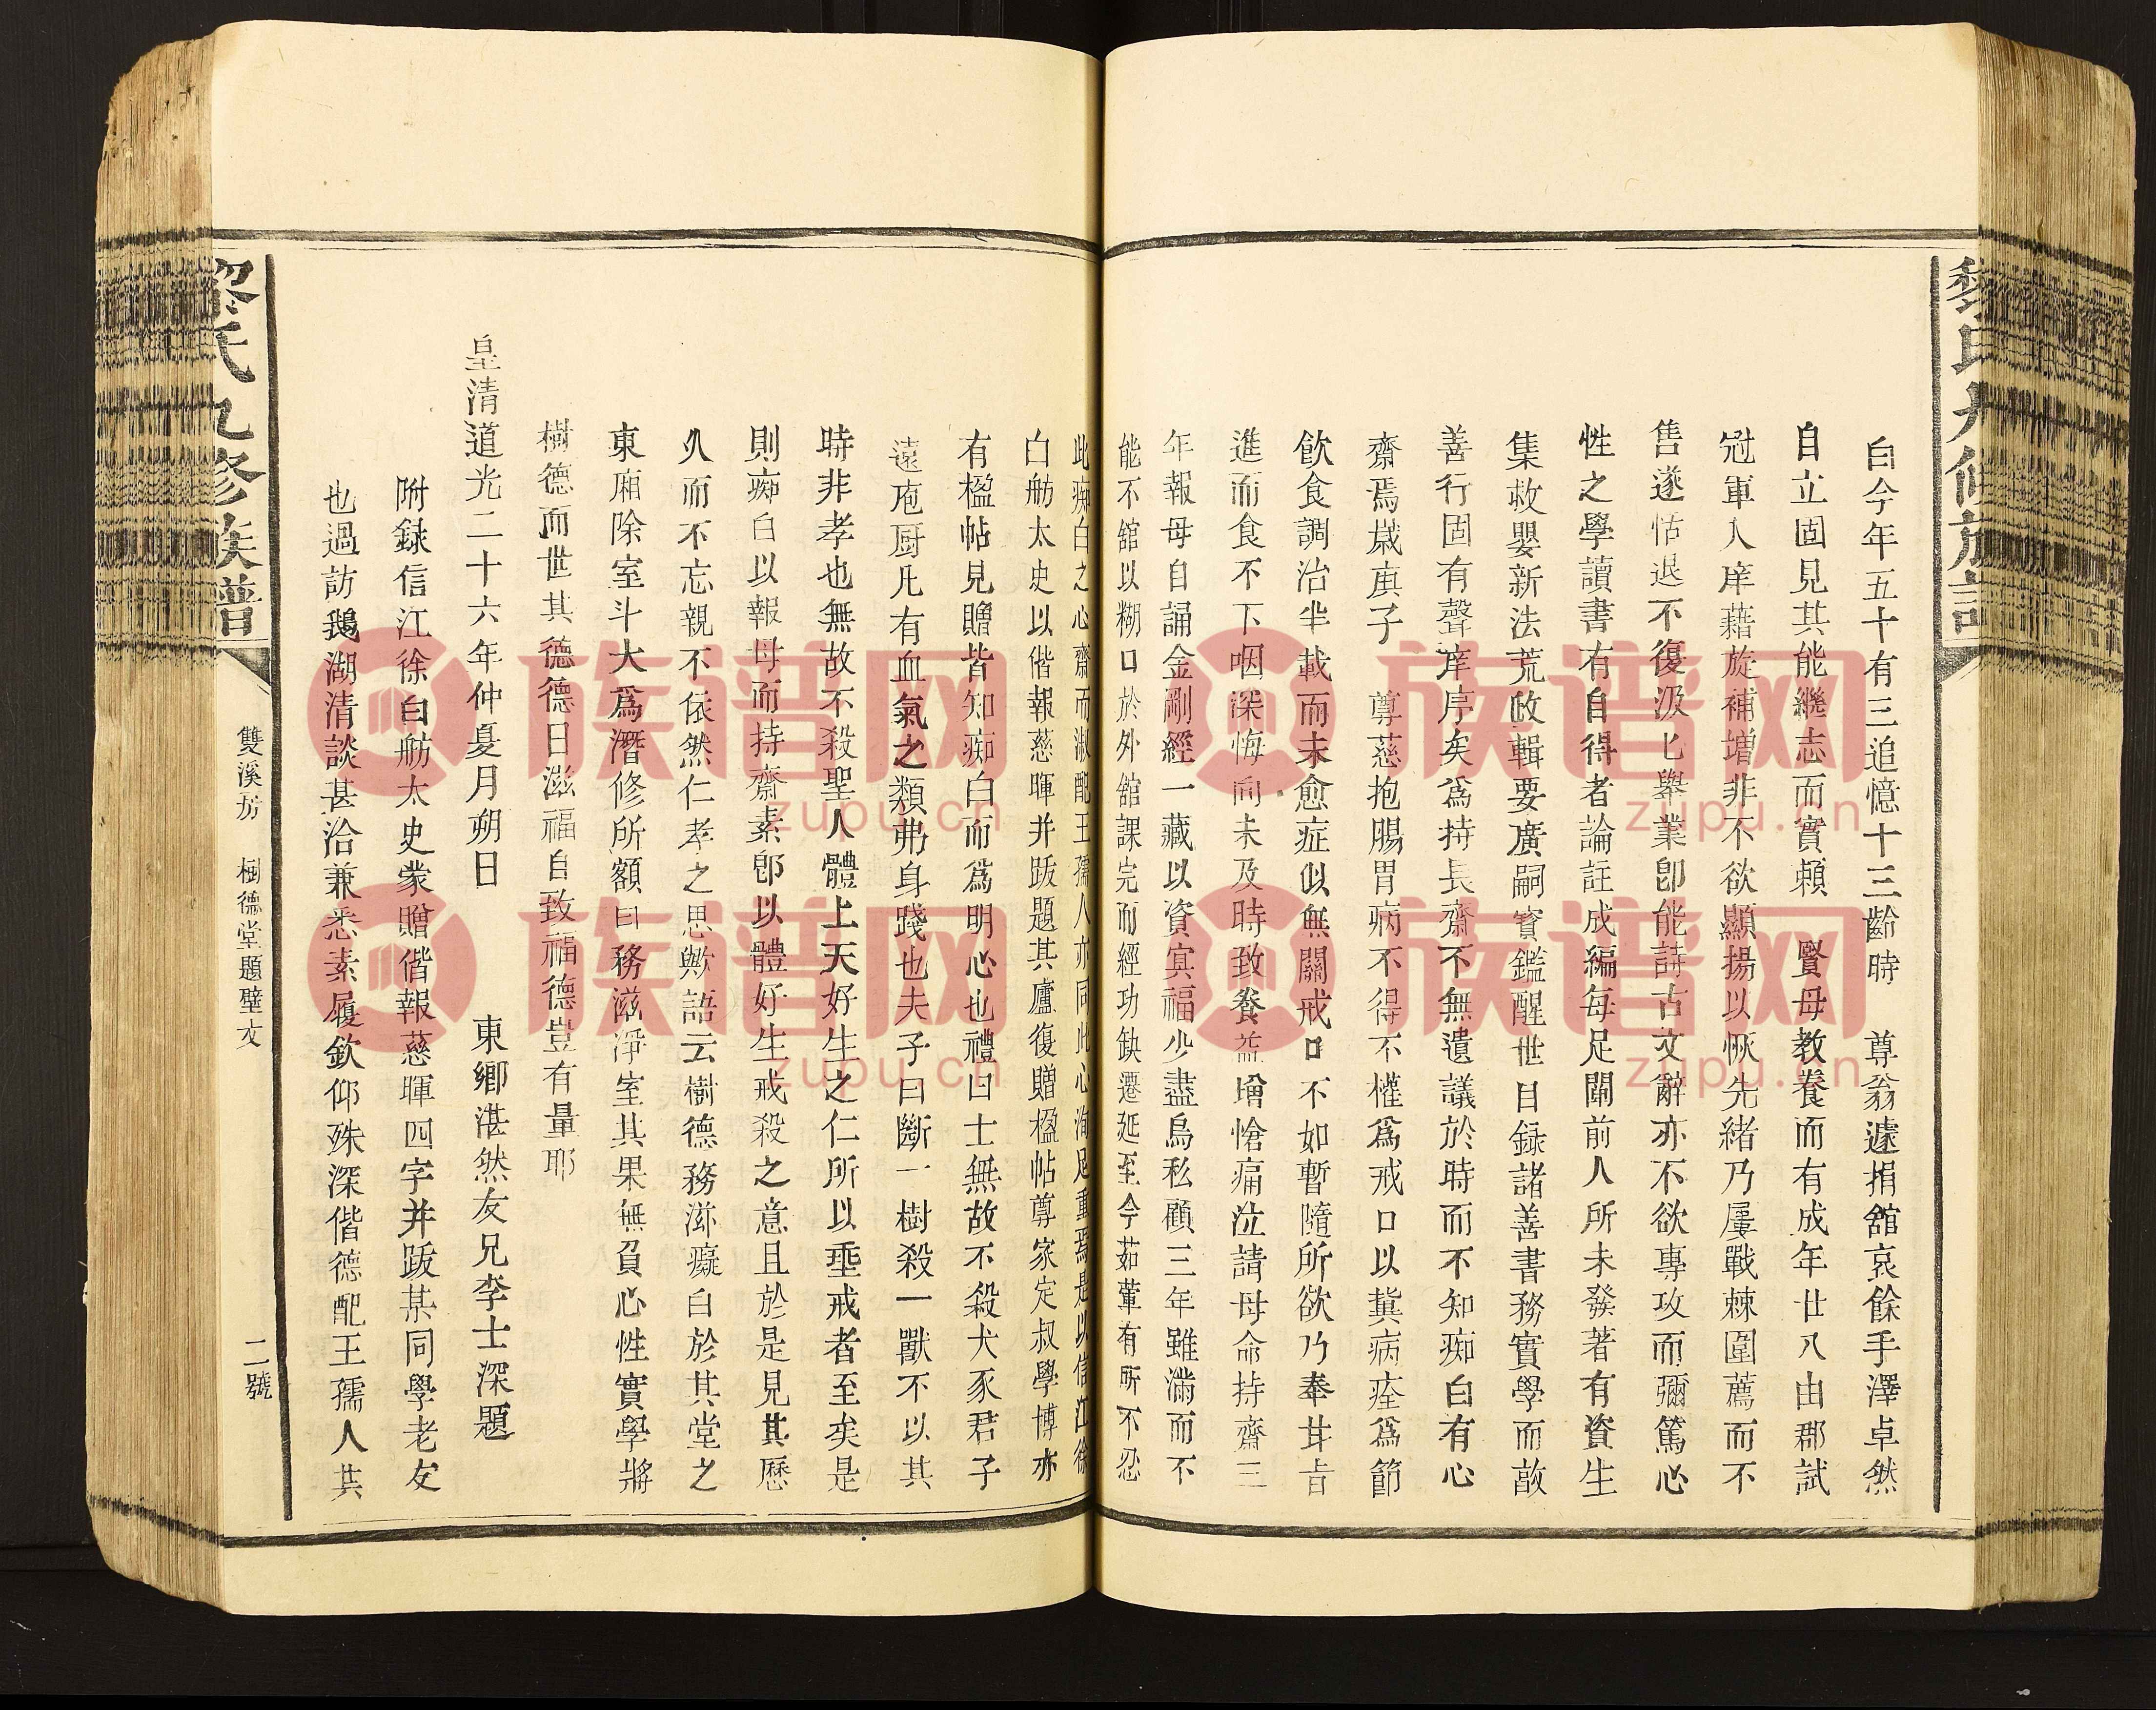 白今年五十有三追憶十三齡時　尊翁遽捐舘哀餘手澤卓然
自立固見其能繼志而實賴　賢母教養而有成年廿八由郡試
冠軍入庠藉旋補增非不欲顯揚以恢先緒乃屢戰棘圍薦而不
售遂恬退不復汲匕舉業卽能詩古文辭亦不欲專攻而彌篤心
性之學讀書有自得者論註成編每足闡前人所未發著有資生
集救嬰新法荒政輯要廣嗣寶鑑醒世目録諸善書務實學而敦
善行固有聲庠序矣爲持長齋不無遺議於時而不知痴白有心
齋焉歲庚子　尊慈抱腸胃病不得不權爲戒口以冀病痊爲節
飲食調治半載而未愈症似無關戒口不如暫隨所欲乃奉甘旨
進而食不下咽深悔向未及時致養益增愴痛泣請母命持齋三
年報母自誦金剛經一藏以資㝠福少盡烏私顧三年雖滿而不
能不舘以糊口於外舘課完而經功缺遷延至今茹葷有所不忍
此痴白之心齋而淑配王孺人亦同此心洵足重焉是以信江徐
白舫太史以偕報慈暉并跋題其廬復贈楹帖尊家定叔學博亦
有楹帖見贈皆知痴白而爲明心也禮曰士無故不殺犬豕君子
遠庖厨凡有血氣之類弗身踐也夫子曰斷一樹殺一獸不以其
時非孝也無故不殺聖人體上天好生之仁所以垂戒者至矣是
則痴白以報母而持齋素卽以體好生戒殺之意且於是見其歷
久而不忘親不依然仁孝之思歟語云樹德務滋癡白於其堂之
東厢除室斗大爲潛修所額曰務滋淨室其果無負心性實學將
樹德而世其德德日滋福自致福德豈有量耶
皇清道光二十六年仲夏月朔日　東鄉湛然友兄李士深題
附録信江徐白舫太史蒙贈偕報慈暉四字并跋某同學老友
也過訪鵝湖清談甚洽兼悉素履欽仰殊深偕德配王孺人共
黎氏九修族譜
雙溪房　樹德堂題壁文
二號